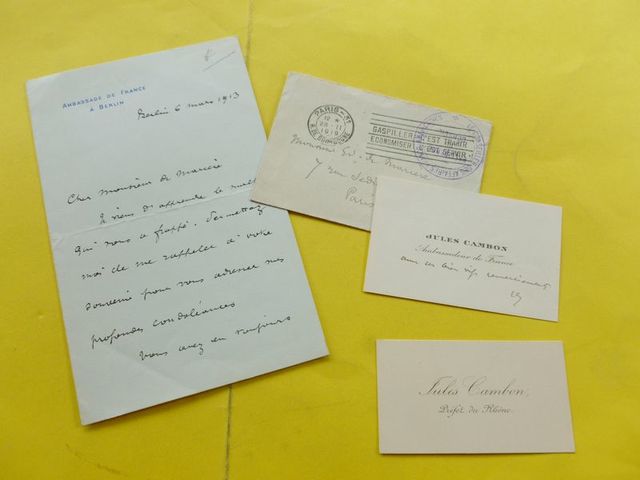 AMBASSADE DE FRANCE
À BERLIN
Berlin 6 mars 1913
Cher Monsieur de Marcère
Je viens d'apprendre le malheur
qui vous a frappé. Permettez
moi de me rappeler à votre
souvenir pour vous adresser mes
profondes condoléances
Vous avez eu toujours
PARIS
1919
GASPILLER C'EST TRAHIR
ECONOMISER C'EST SERVIR
Monsieur Ed. de Marcère
7 rue
Paris
JULES CAMBON
Ambassadeur de France
avec ses bien vifs remerciements
Jules Cambon,
Préfet du Rhône.